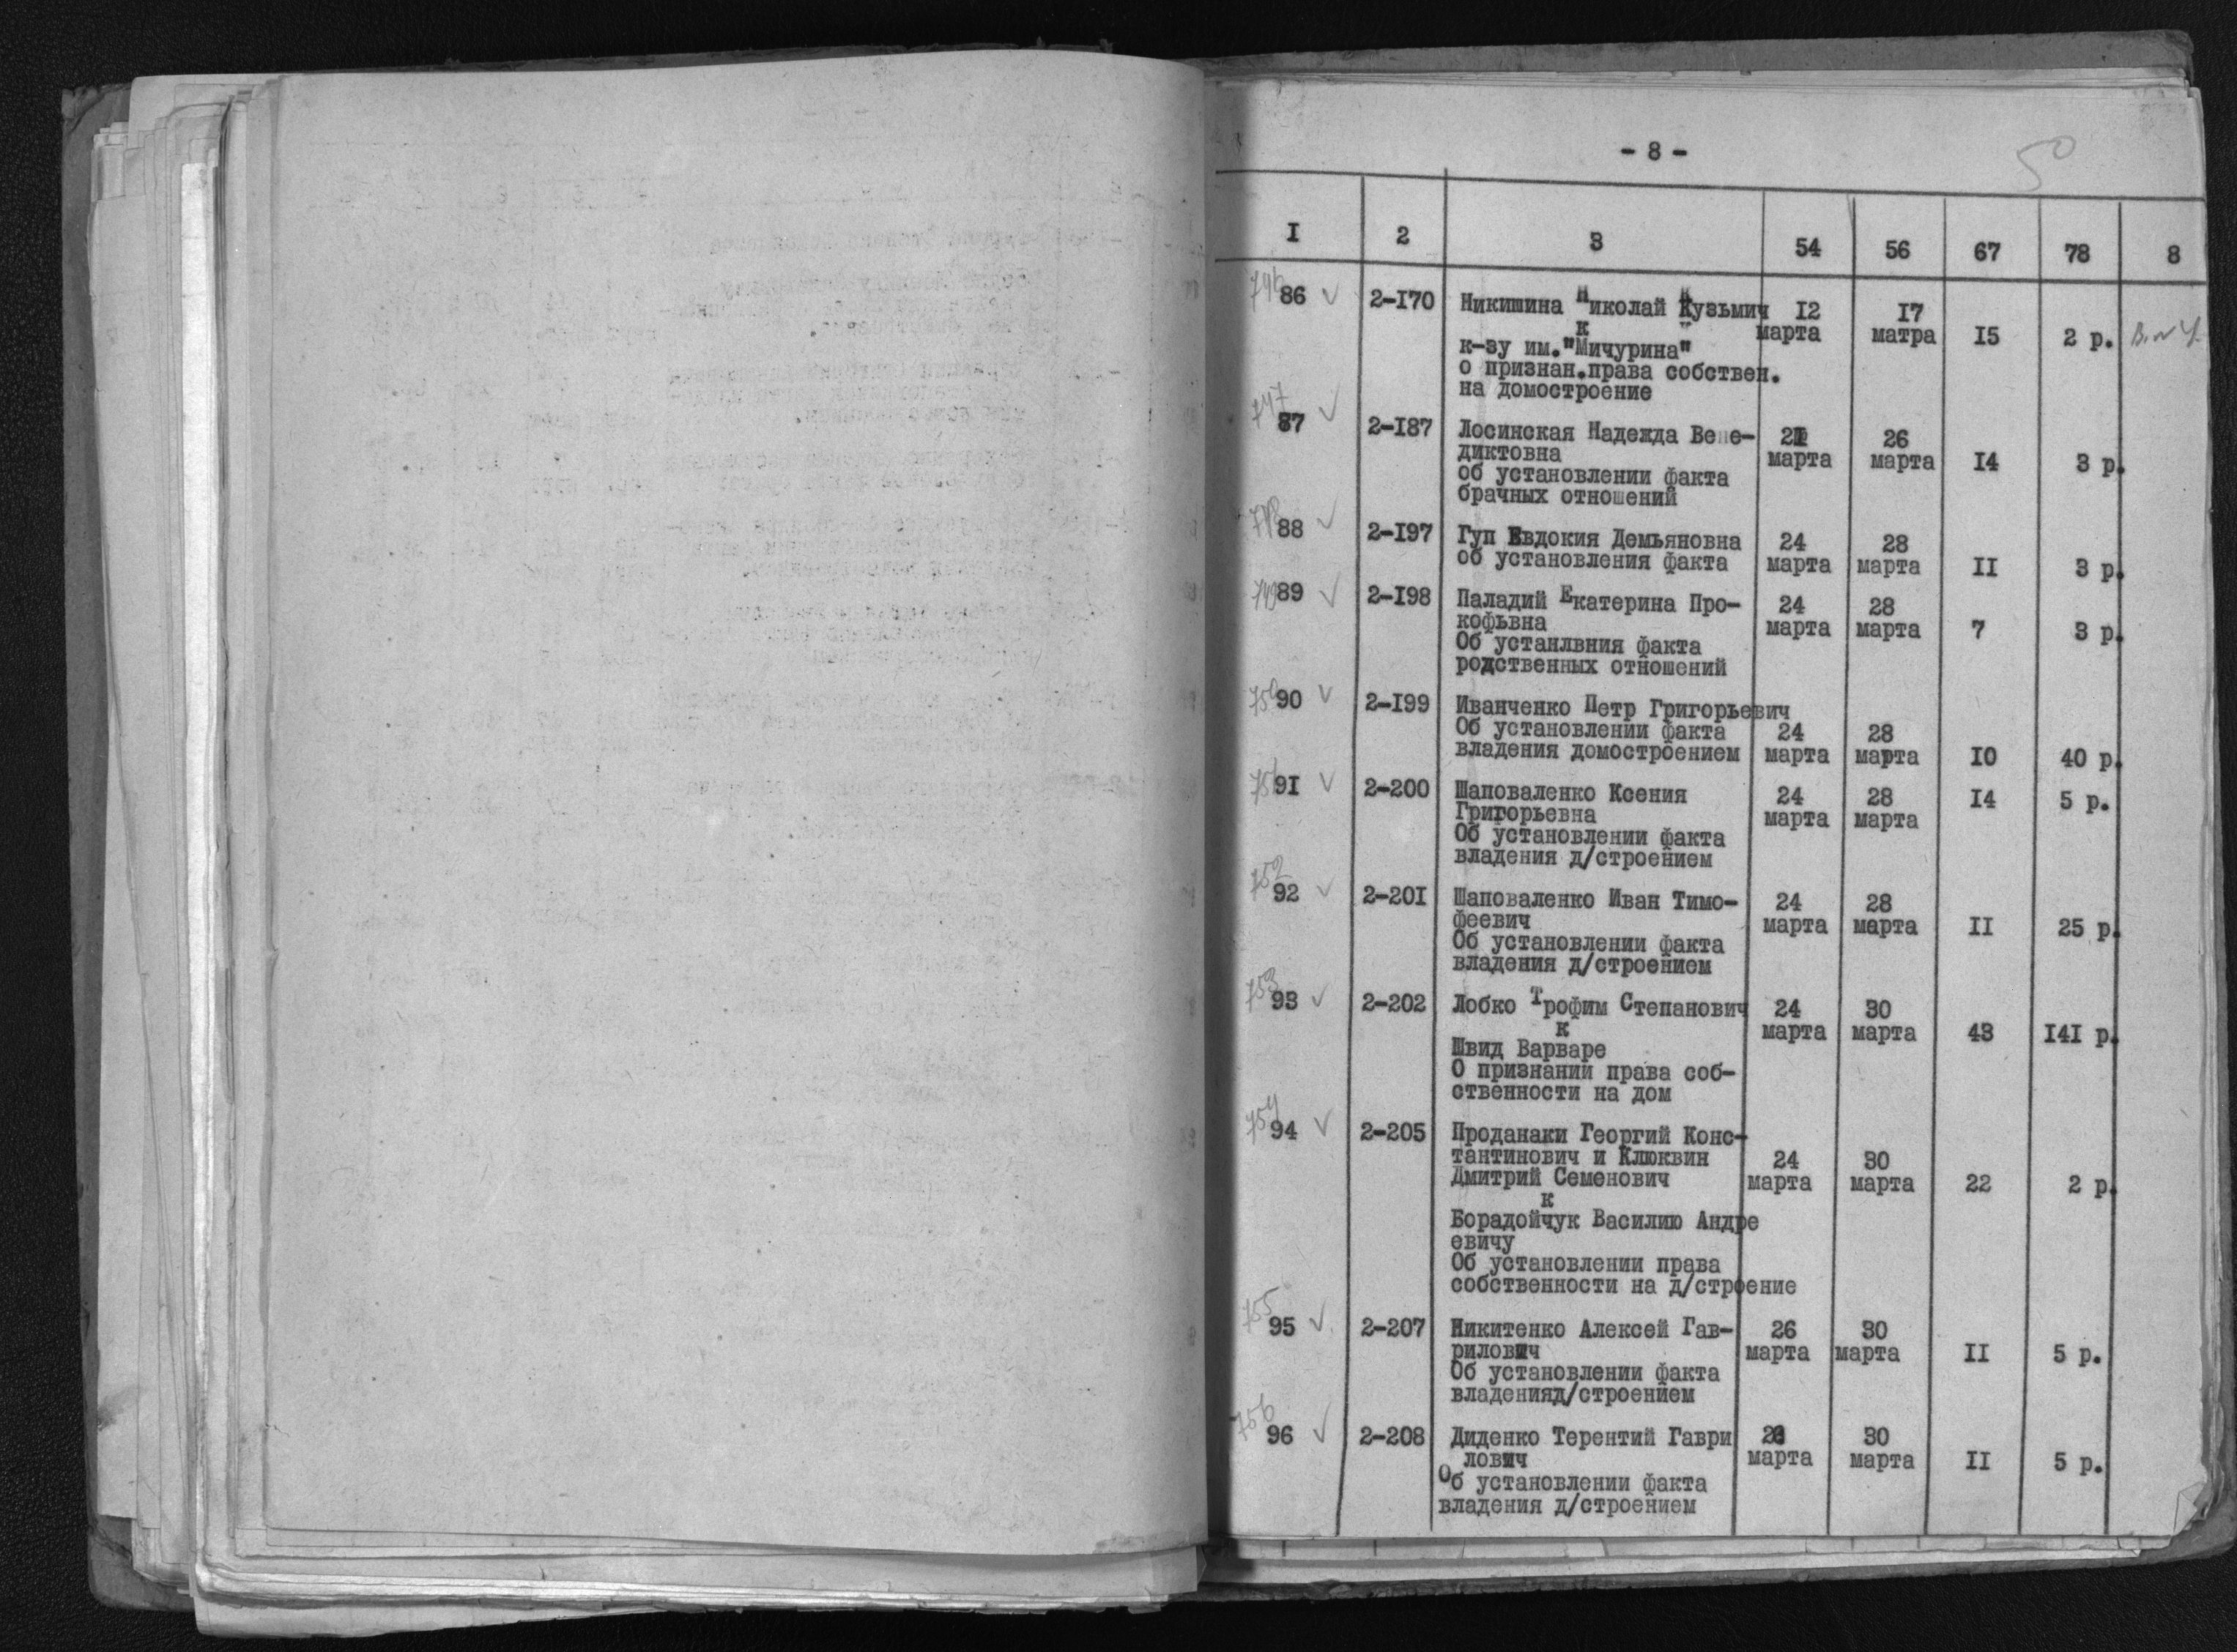 - 8 -
50
I 2 3 54 56 67 78 8
746
86 ✓ 2-170 Никишина Николай Кузьмич 12 17
к марта матра 15 2 р.
к-зу им."Мичурина"
о признан.права собствен.
на домостроение
747
87 ✓ 2-187 Лосинская Надежда Вене- 21 26
диктовна марта марта 14 3 р.
об установлении факта
брачных отношений
748
88 ✓ 2-197 Гуп Евдокия Демьяновна 24 28
об установления факта марта марта II 3 р.
749
89 ✓ 2-198 Паладий Екатерина Про- 24 28
кофьвна марта марта 7 3 р.
Об устанлвния факта
родственных отношений
750
90 ✓ 2-199 Иванченко Петр Григорьевич
Об установлении факта 24 28
владения домостроением марта марта 10 40 р.
751
91 ✓ 2-200 Шаповаленко Ксения 24 28 14 5 р.
Григорьевна марта марта
Об установлении факта
владения д/строением
752
92 ✓ 2-201 Шаповаленко Иван Тимо- 24 28
феевич марта марта II 25 р.
Об установлении факта
владения д/строением
753
93 ✓ 2-202 Лобко Трофим Степанович 24 30
к марта марта 43 141 р.
Швид Варваре
О признании права соб-
ственности на дом
754
94 ✓ 2-205 Проданаки Георгий Конс-
тантинович и Клюквин 24 30
Дмитрий Семенович марта марта 22 2 р.
к
Борадойчук Василию Андре
евичу
Об установлении права
собственности на д/строение
755
95 ✓ 2-207 Никитенко Алексей Гав- 26 30
рилович марта марта II 5 р.
Об установлении факта
владенияд/строением
756
96 ✓ 2-208 Диденко Терентий Гаври 30
лович марта марта II 5 р.
Об установлении факта
владения д/строением